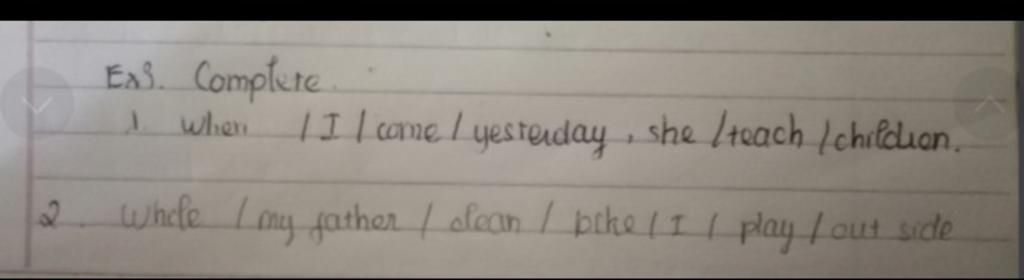 Ex3. Complete.
1. When / I / come / yesterday, she / teach / children.
2. While / my father / clean / bike / I / play / out side